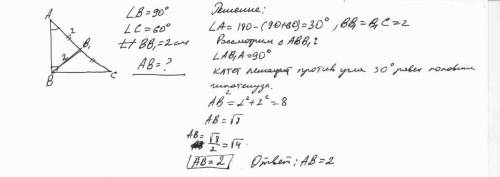 A
2
B₁
2
B
C
∠B=90°
∠C=60°
BB₁=2см
AB=?
Решение:
∠A=180-(90+60)=30°, BB₁=B₁C=2
Рассмотрим △ABB₁:
∠AB₁A=90°
катет лежащий против угла 30° равен половине
гипотенузы.
AB²=2²+2²=8
AB=√8
AB=√8/2=√4.
AB=2 Ответ: AB=2